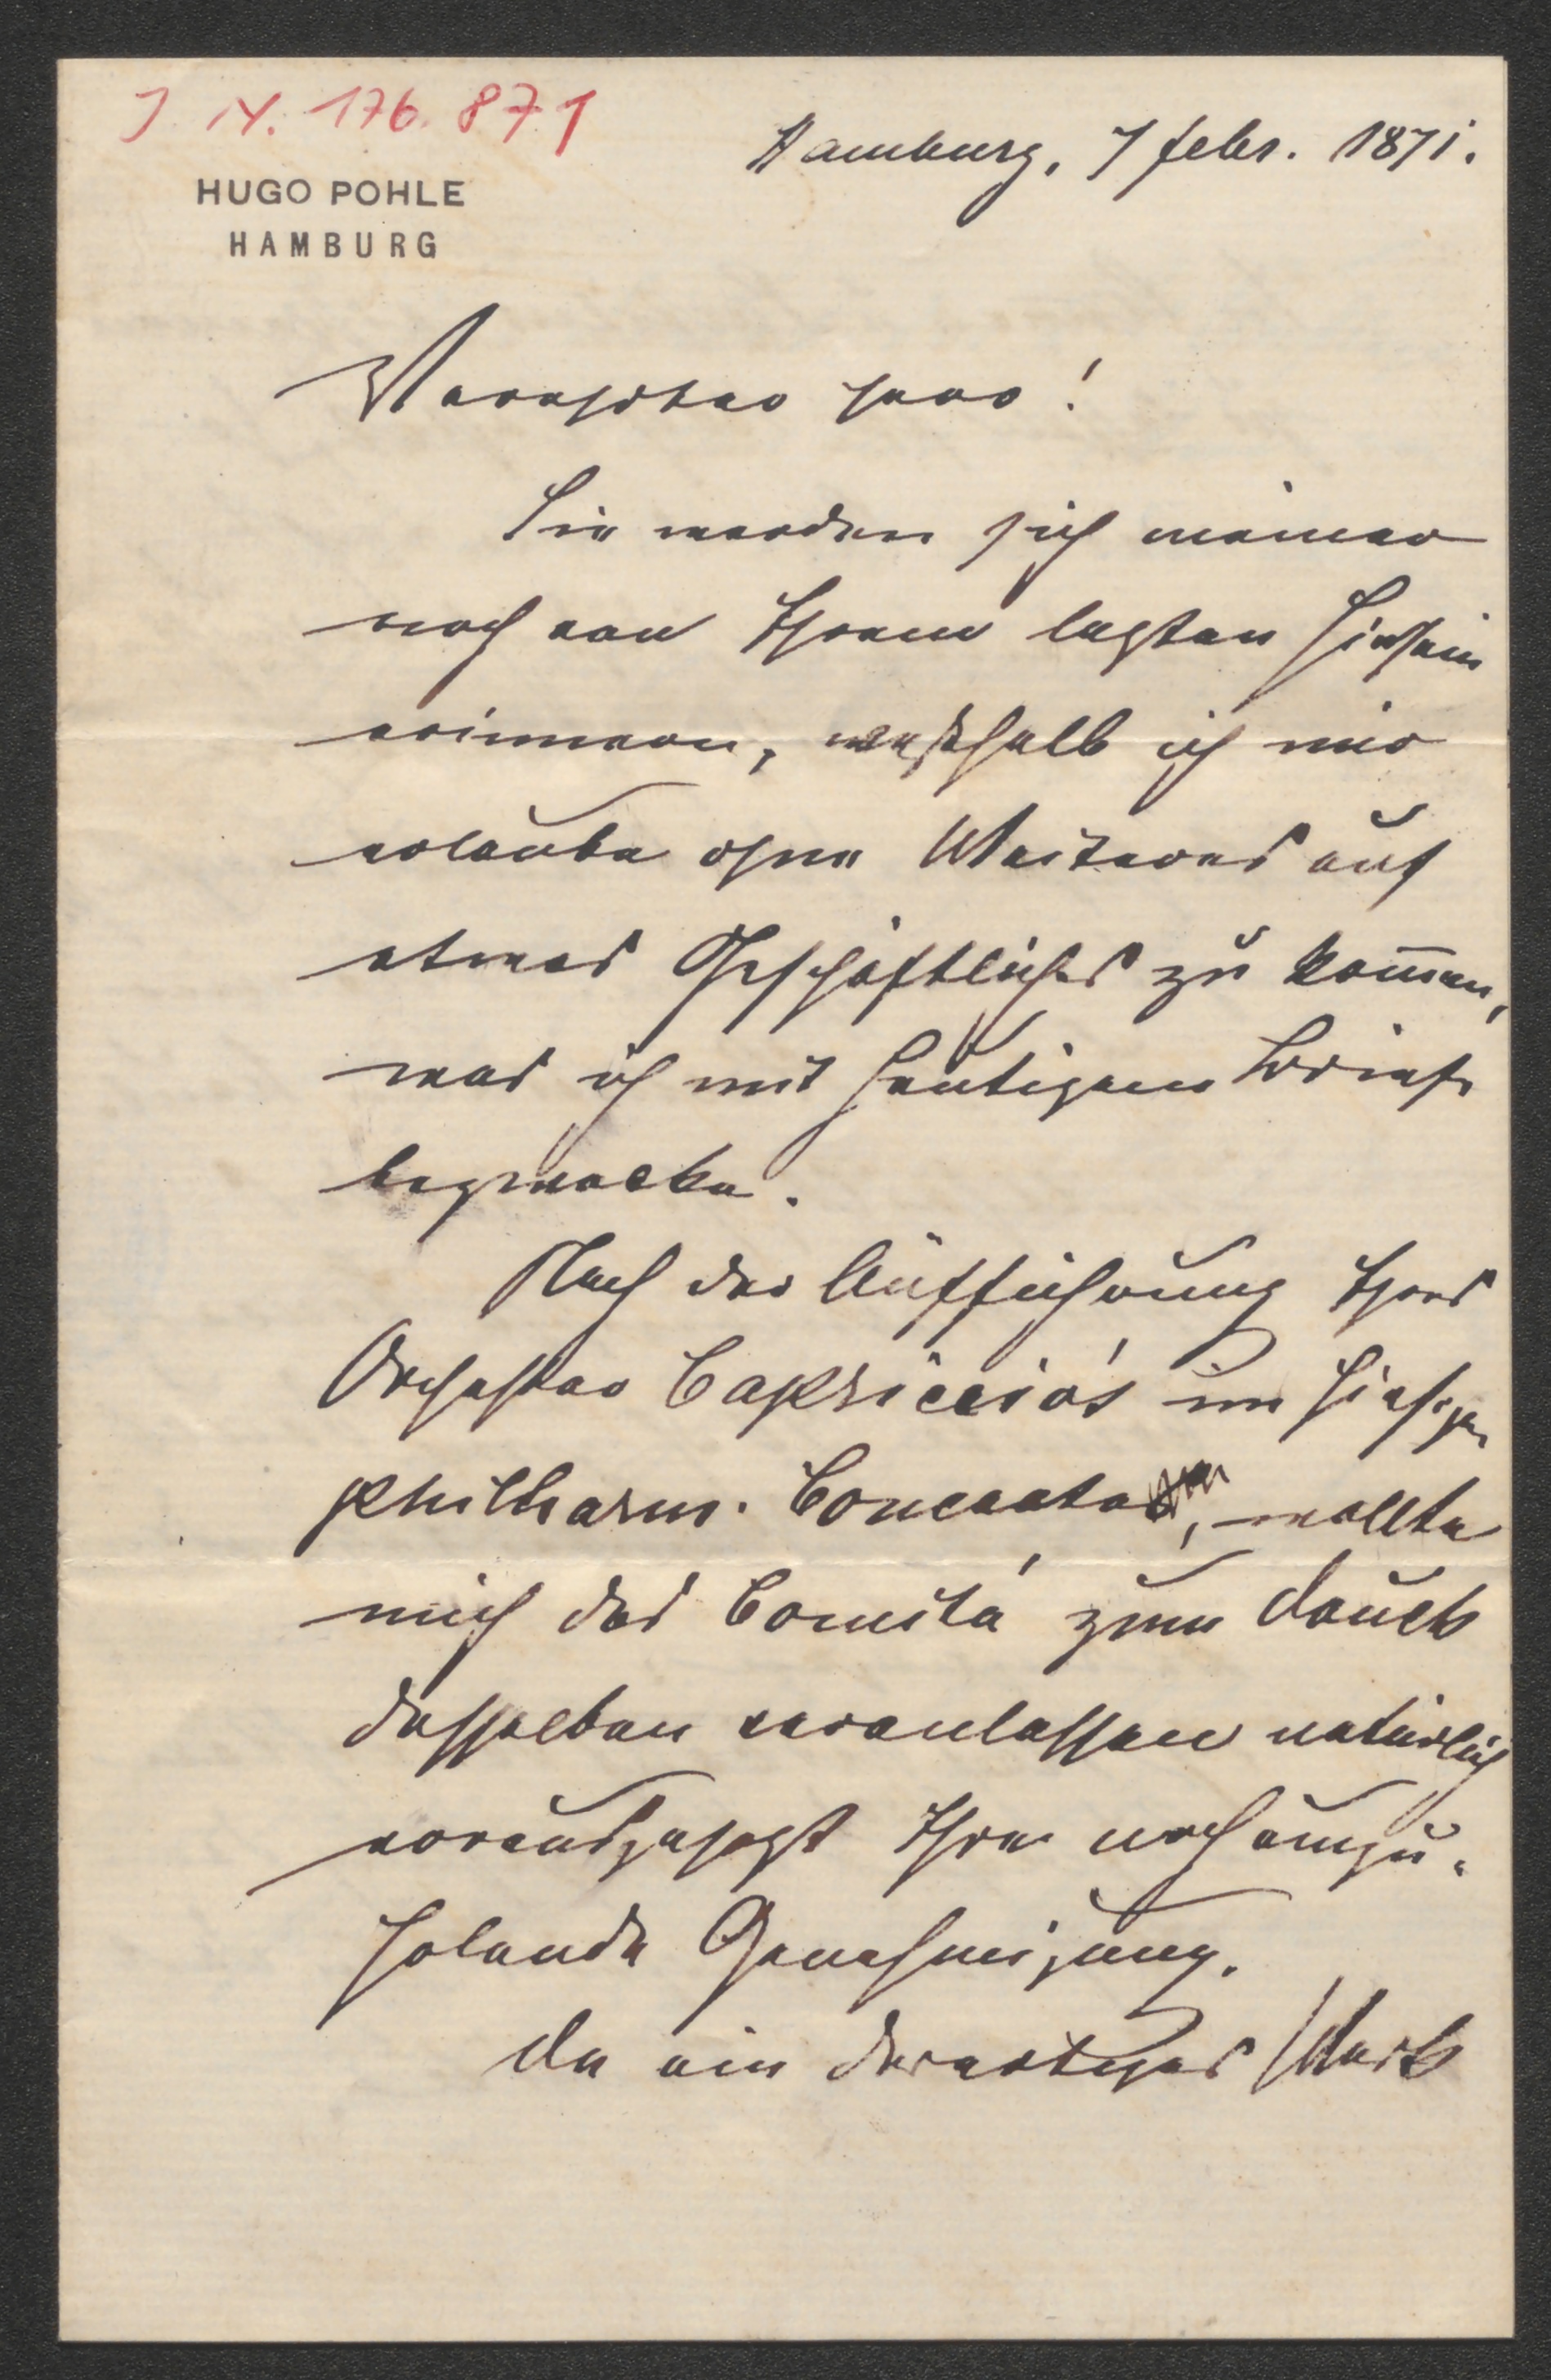 J. N. 176.871
Hamburg, 7 febr. 1871.
HUGO POHLE
HAMBURG
Verehrter Herr!
Sie werden sich meiner
noch von Ihrem letzten Hiersein
erinnern, weßhalb ich mir
erlaube ohne Weiteres auf
etwas Geschäftliches zu kom̄en,
was ich mit heutigem Briefe
bezwecke.
Nach der Aufführung Ihres
Orchester Capriccio's im hiesigen
philharm. Concerte, wollte
mich das Comité zum Druck
desselben veranlassen natürlich
vorausgesetzt Ihre noch einzu-
holende Genehmigung.
Da ein derartiges Werk